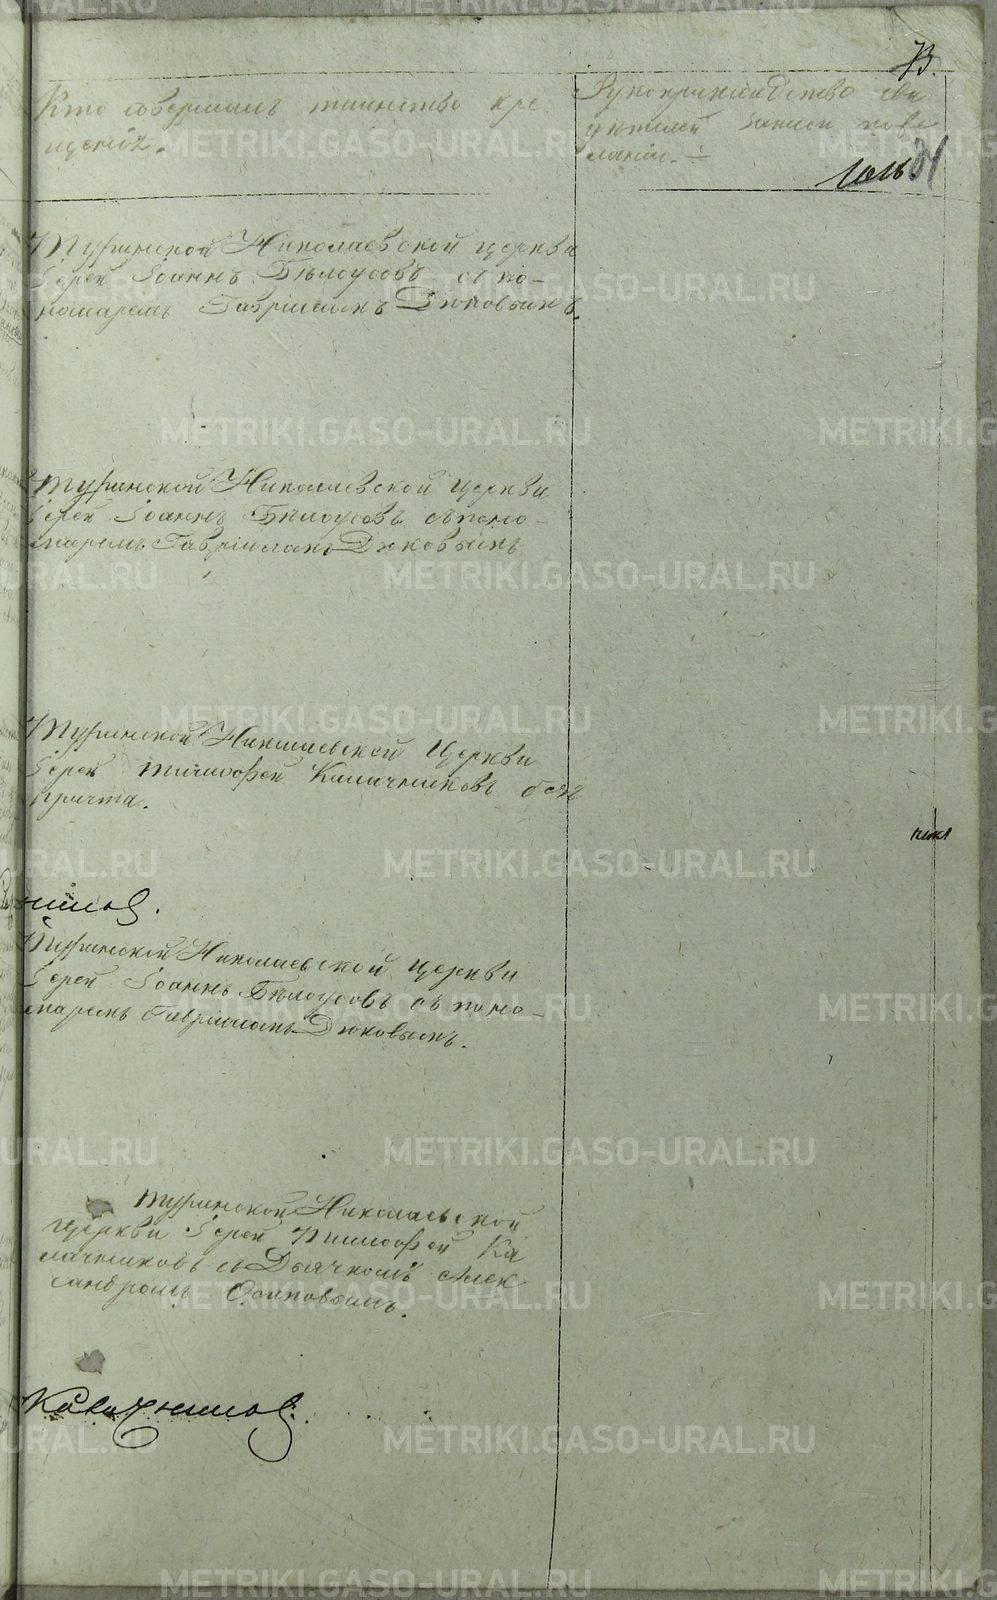 73.
Кто совершалъ таинство кре
щенія.
Рукоприкладство сви
дѣтелей записи по же
ланію.
Туринской Николаевской церкви
Іерей Іоаннъ Бѣлоусовъ съ по-
номаремъ Гавріиломъ Дюковымъ.
Туринской Николаевской церкви
Іерей Іоаннъ Бѣлоусовъ съ поно-
маремъ Гавріиломъ Дюковымъ
Туринской Николаевской церкви
Іерей Тимофей Калачниковъ безъ
причта.
Туринской Николаевской церкви
Іерей Іоаннъ Бѣлоусовъ съ поно-
маремъ Гавріиломъ Дюковымъ.
Туринской Николаевской
церкви Іерей Тимофей Ка
лачниковъ съ Дьячкомъ Алек
сандромъ Осиповымъ.
METRIKI.GASO-URAL.RU